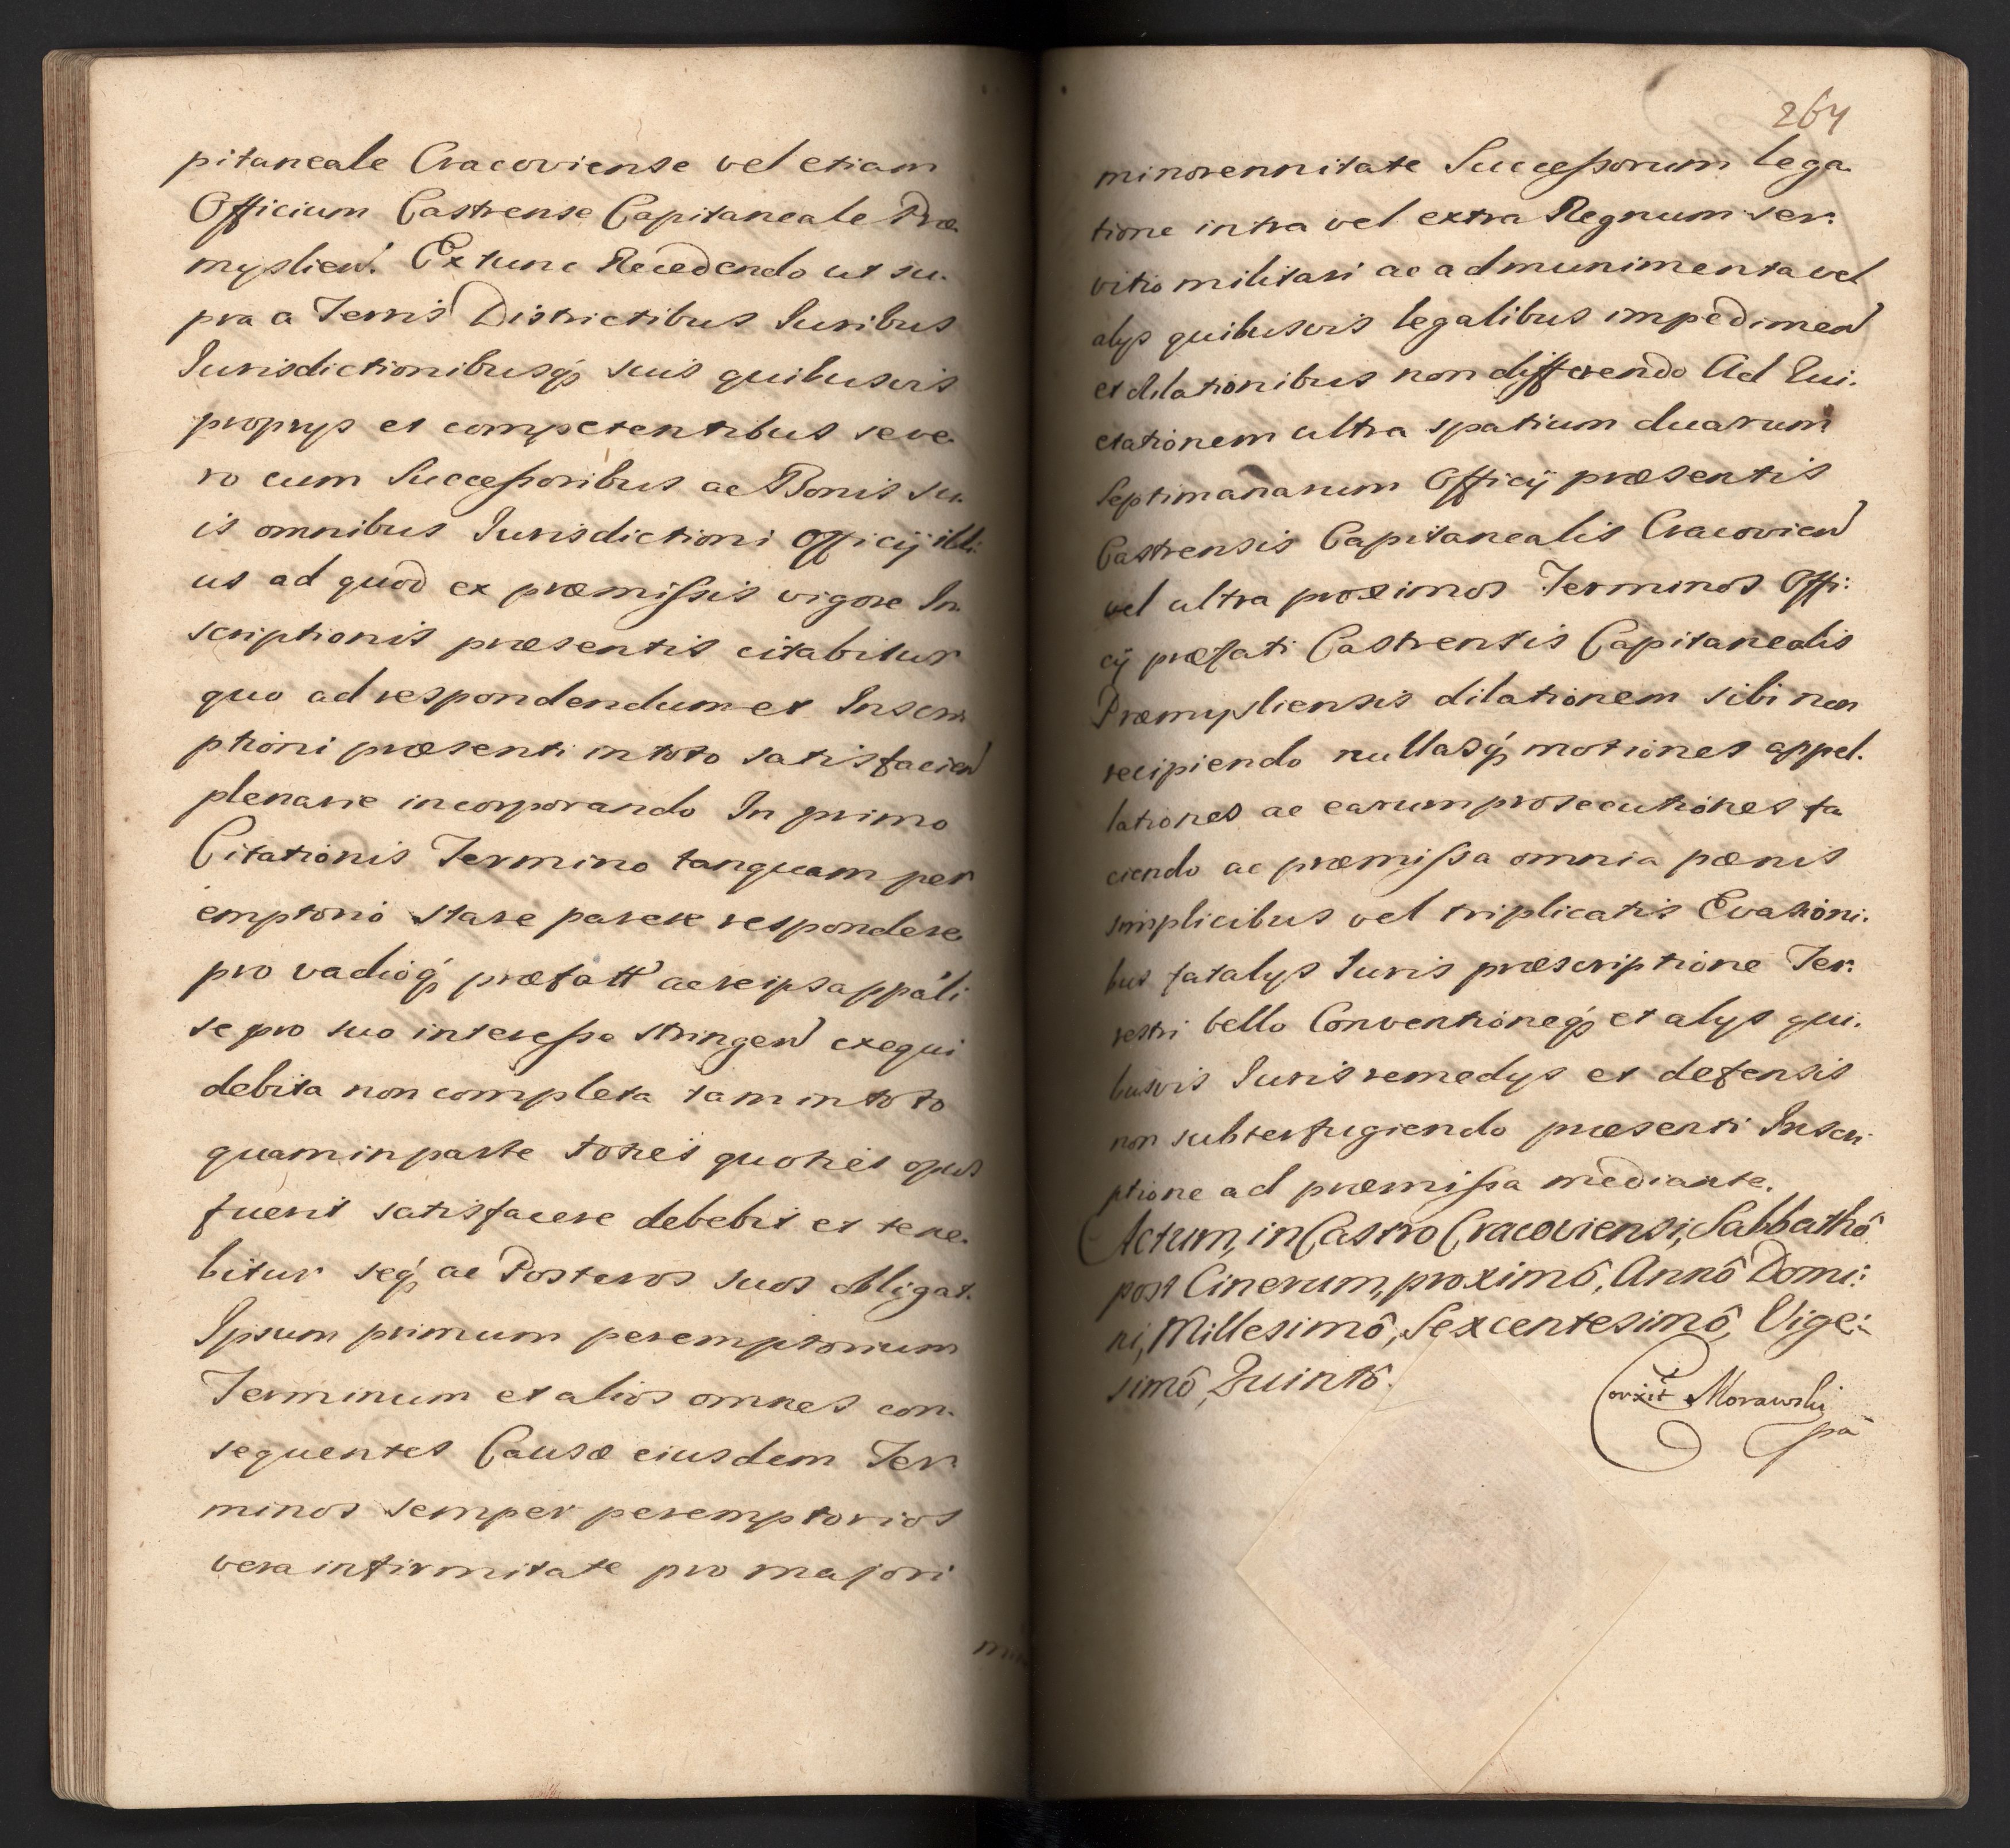 pitaneale Cracoviense vel etiam
Officium Castrense Capitaneale Præ-
myslien. Extunc Recedendo ut su-
pra a Terris Districtibus Iuribus
Iurisdictionibusq́ suis quibusvis
proprys et competentibus seve-
ro cum Successoribus ac Bonis su-
is omnibus Iurisdictioni Officij illi-
us ad quod ex præmissis vigore In-
scriptionis præsentis citabitur
quo ad respondendum et Inscri-
ptioni præsenti in toto satisfacien
plenarie incorporando In primo
Citationis Termino tanquam per
emptorio stare parere respondere
pro vadioq́ præfatt ac re ipsa
se pro suo interesse stringen exequi
debita non completa tam in toto
quam in parte toties quoties opus
fuerit satisfacere debebit et tene-
bitur seq́ ac Posteros suos obligat.
Ipsum primum peremptorium
Terminum et alios omnes con-
sequentes Causæ eiusdem Ter-
minos semper peremptorios
vera infirmitate pro majori
264
minorennitate Successorum lega-
tione intra vel extra Regnum ser-
vitio militari ac ad munimenta vel
alys quibusvis legalibus impedimen
et dilationibus non differendo Ad Evi-
ctationem ultra spatium duarum
Septimanarum Officij præsentis
Castrensis Capitanealis Cracovien
vel ultra proximos Terminos Offi:
cij præfati Castrensis Capitanealis
Præmysliensis dilationem sibi non
recipiendo nullasq́ motiones appel-
lationes ac earum prosecutiones fa
ciendo ac præmissa omnia pœnis
simplicibus vel triplicatis Evasioni-
bus fatalys Iuris præscriptione Ter:
restri bello Conventioneq́ et alys qui-
busvis Iuris remedys et defensis
non subterfugiendo præsenti Inscri-
ptione ad præmissa mediante.
Actum, in Castro Cracoviensi, Sabbathô
post Cinerum, proximô, Annô Domi:
ni, Millesimô, Sexcentesimô, Vige:
simô, Quintô.
Corxit Morawski